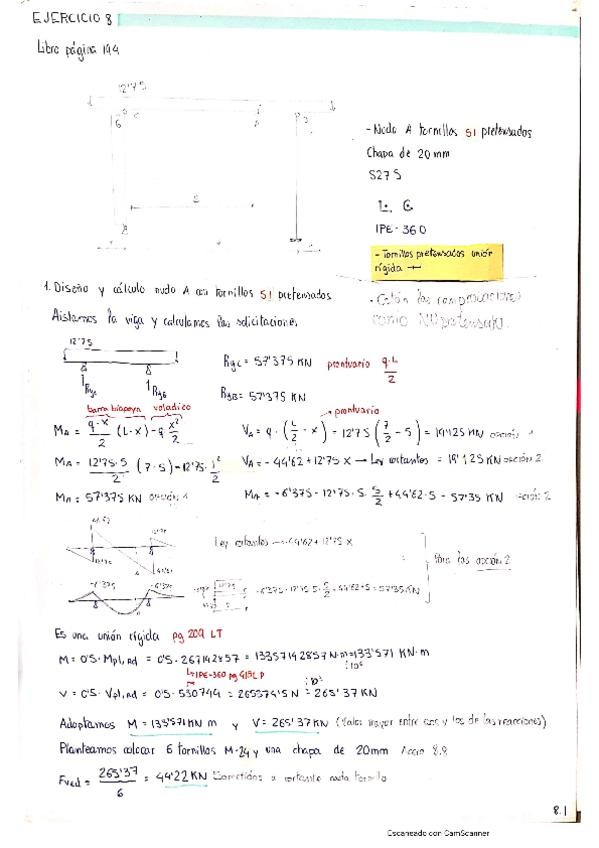 EJERCICIO 8
Libro página 194
12'75
- Nudo A tornillos SI pretensados
Chapa de 20mm
S275
IPE-360
- Tornillos pretensados unión
rígida
1. Diseño y cálculo nudo A con tornillos SI pretensados
- Están las comprobaciones
como NO pretensado.
Aislamos la viga y calculamos las solicitaciones
12'75
Ryc = 57'375 KN prontuario q·L/2
Ryc RyB RyB = 57'375 KN
barra biapoya voladizo prontuario
MA = q·x/2 (L-x) - q x²/2 VA = q·(L/2 - x) = 12'75 (7/2 - 5) = 19'125 KN opción 1
MA = 12'75·5/2 (7-5) - 12'75·1²/2 VA = -44'62 + 12'75 x → Ley cortantes = 19'125 KN opción 2
MA = 57'375 KN opción 1 MA = -6'375 - 12'75·5·5/2 + 44'62·5 = 57'35 KN opción 2
Ley cortantes → -44'62 + 12'75 x
Para las opción 2
-6'375 -6'375
-6'375 - 12'75·5·5/2 + 44'62·5 = 57'35 KN
Es una unión rígida pg 209 LT
M = 0'5·Mpl,Rd = 0'5·267142857 = 133571428'57 N·m = 133'571 KN·m
IPE-360 pg 415 LP :10⁶
V = 0'5·Vpl,Rd = 0'5·530744 = 265374'5 N = 265'37 KN
:10³
Adoptamos M = 133'571 KN m y V = 265'37 KN (Valor mayor entre esos y los de las reacciones)
Planteamos colocar 6 tornillos M-24 y una chapa de 20mm Acero 8.8
Fv,Ed = 265'37/6 = 44'22 KN Sometidos a cortante cada tornillo
8.1
Escaneado con CamScanner